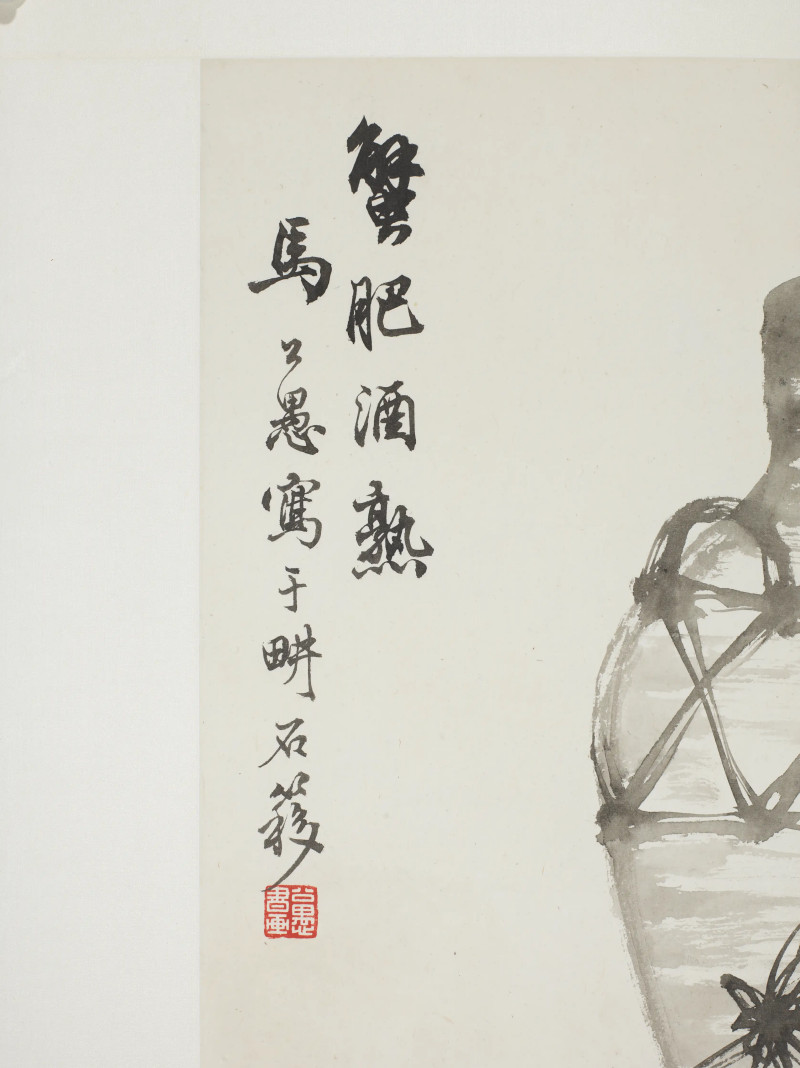 蟹肥酒熟
馬公愚寫于畊石簃
公愚書畫